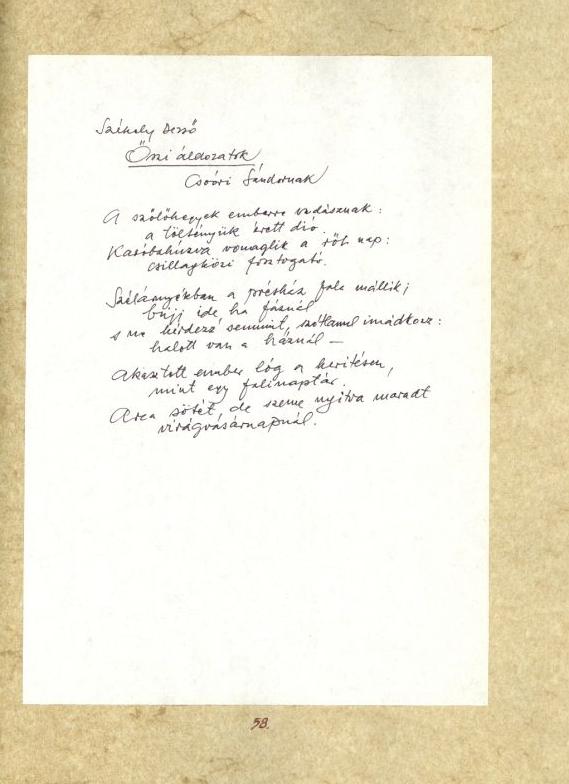 Székely Dezső
Őszi áldozatok
Csoóri Sándornak
A szőlőhegyek emberre vadásznak:
a töltényük érett dió.
Karóbahúzva vonaglik a rőt nap:
csillagközi fosztogató.
Szélárnyékban a présház fala mállik;
bújj ide, ha fáznál
s ne kérdezz semmit, szótlanul imádkozz:
halott van a háznál —
Akasztott ember lóg a kerítésen,
mint egy falinaptár.
Arca sötét, de szeme nyitva maradt
virágvasárnapnál.
58.